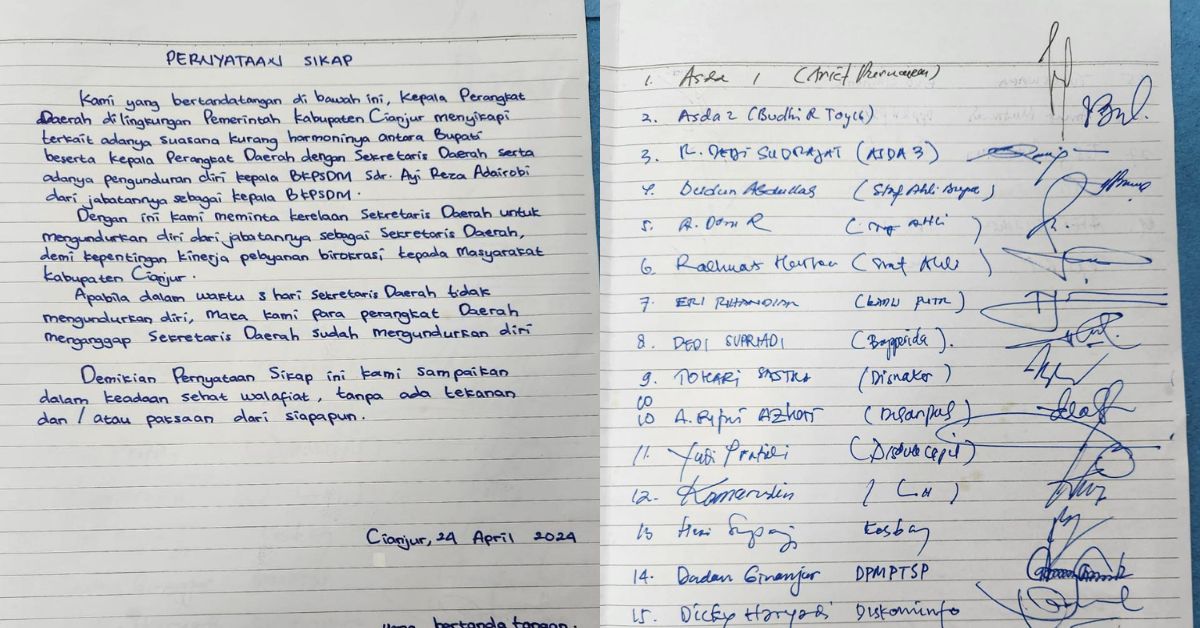 PERNYATAAN SIKAP
Kami yang bertandatangan di bawah ini, Kepala Perangkat
Daerah dilingkungan Pemerintah Kabupaten Cianjur menyikapi
terkait adanya suasana kurang harmoninya antara Bupati
beserta kepala Perangkat Daerah dengan Sekretaris Daerah serta
adanya pengunduran diri kepala BKPSDM Sdr. Ayi Reza Adairobi
dari jabatannya sebagai kepala BKPSDM.
Dengan ini kami meminta kerelaan Sekretaris Daerah untuk
mengundurkan diri dari jabatannya sebagai Sekretaris Daerah,
demi kepentingan kinerja pelayanan birokrasi kepada Masyarakat
Kabupaten Cianjur.
Apabila dalam waktu 3 hari Sekretaris Daerah tidak
mengundurkan diri, maka kami para perangkat Daerah
menganggap Sekretaris Daerah sudah mengundurkan diri
Demikian Pernyataan Sikap ini kami sampaikan
dalam keadaan sehat walafiat, tanpa ada tekanan
dan / atau paksaan dari siapapun.
Cianjur, 24 April 2024
yang bertanda tangan.
1. Asda 1
2. Asda 2 (Budhi R Toyib)
3. R. DEDI SUDRAJAT (ASDA 3)
4. Abdullah (Staf Ahli
5. A. R (Staf Ahli)
6. Rachmat (Staf Ahli)
7. ERI RIHANDIAR
8. DEDI SUPRIADI (Bapperida).
9. TOHARI SASTRA (Disnaker)
10 A. Rifai AZHARI
11. Yudi Pratidi (Disdukcapil)
12. Kamarudin (LH)
13 Kesbang
14. Dadan Ginanjar DPMPTSP
15. Dicky Haryadi Diskominfo